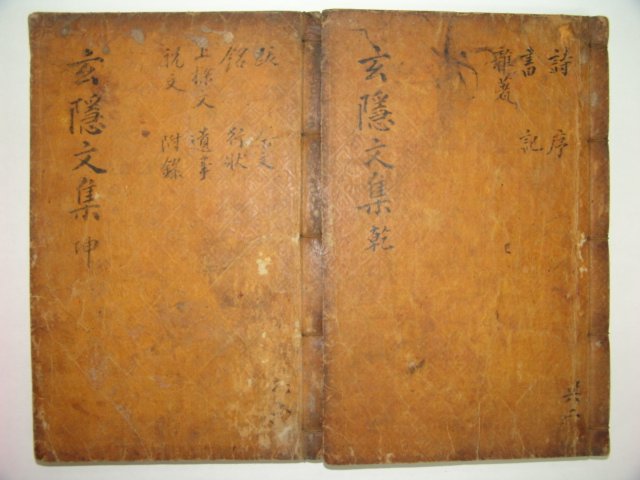 玄隱文集 乾
詩 序
書 記
雜著
共二
玄隱文集 坤
跋 祭文
銘 行狀
上樑文 遺事
祝文 附錄